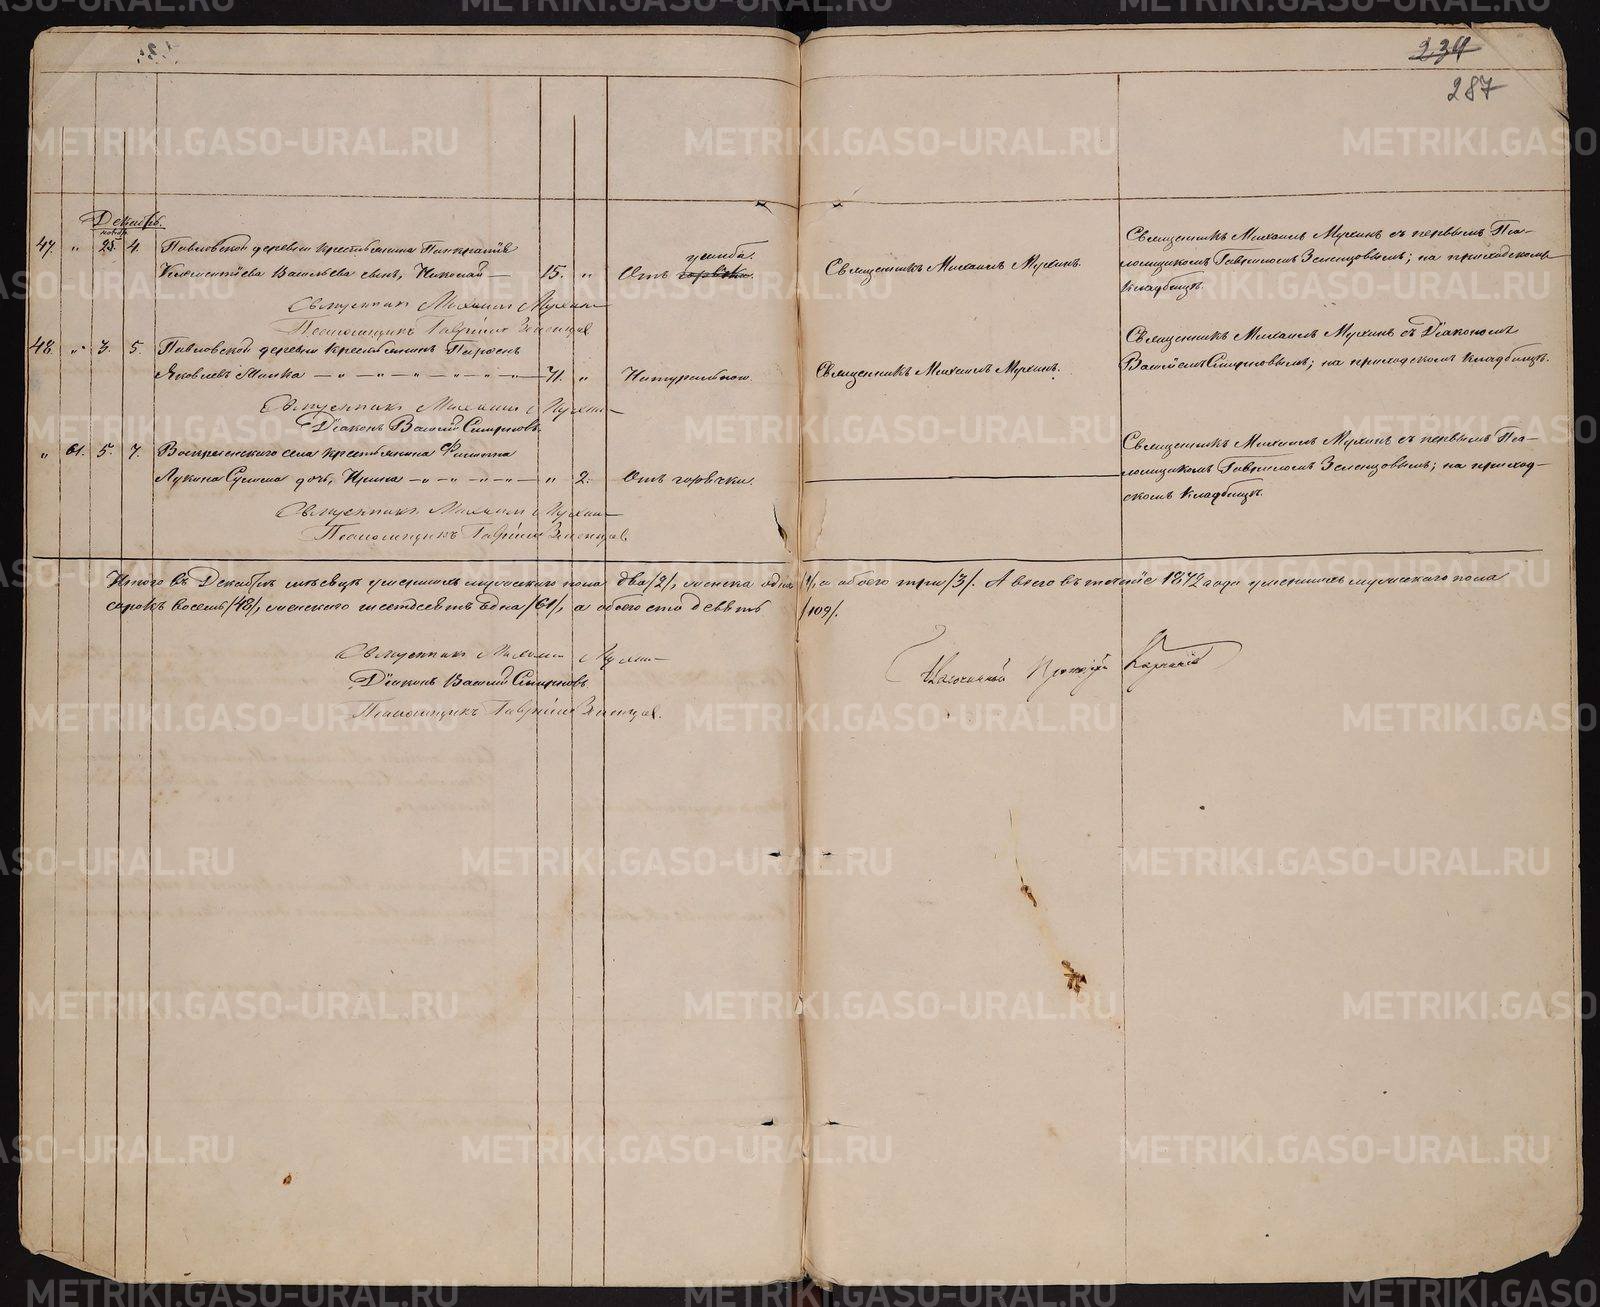 234
287
Декабрь.
нояб.
47. " 25. 4. Павловской деревни крестьянина Панкратія
ушиба.
Климентіева Васильева сынъ, Николай — 15. " Отъ горячки. Священникъ Михаилъ Мухинъ.
Священникъ Михаилъ Мухинъ съ первымъ Пса-
ломщикомъ Гавріиломъ Зеленцовымъ; на приходскомъ
кладбищѣ.
Священникъ Михаилъ Мухинъ
Псаломщикъ Гавріилъ Зеленцов
48. " 3. 5. Павловской деревни крестьянинъ
Яковлевъ — " — " — " — " — " — 71. " Натурально. Священникъ Михаилъ Мухинъ.
Священникъ Михаилъ Мухинъ съ Діакономъ
Василіемъ Смирновымъ; на приходскомъ кладбищѣ.
Священникъ Михаилъ Мухинъ
Діаконъ Василій Смирновъ.
" 61. 5. 7. Воскресенскаго села крестьянина Филиппа
Лукина дочь, Ирина — " — " — " — " — " 2. Отъ горячки.
Священникъ Михаилъ Мухинъ съ первымъ Пса-
ломщикомъ Гавріиломъ Зеленцовымъ; на приход-
скомъ кладбищѣ.
Священникъ Михаилъ Мухинъ
Псаломщикъ Гавріилъ Зеленцов.
Итого въ Декабрѣ мѣсяцѣ умершихъ мужескаго пола два /2/, женска одна /1/, а обоего три /3/. А всего въ теченіе 1872 года умершихъ мужескаго пола
сорокъ восемь /48/, женскаго шестдесятъ одна /61/, а обоего сто девять /109/.
Священникъ Михаилъ Мухинъ
Діаконъ Василій Смирновъ
Псаломщикъ Гавріилъ Зеленцов.
METRIKI.GASO-URAL.RU